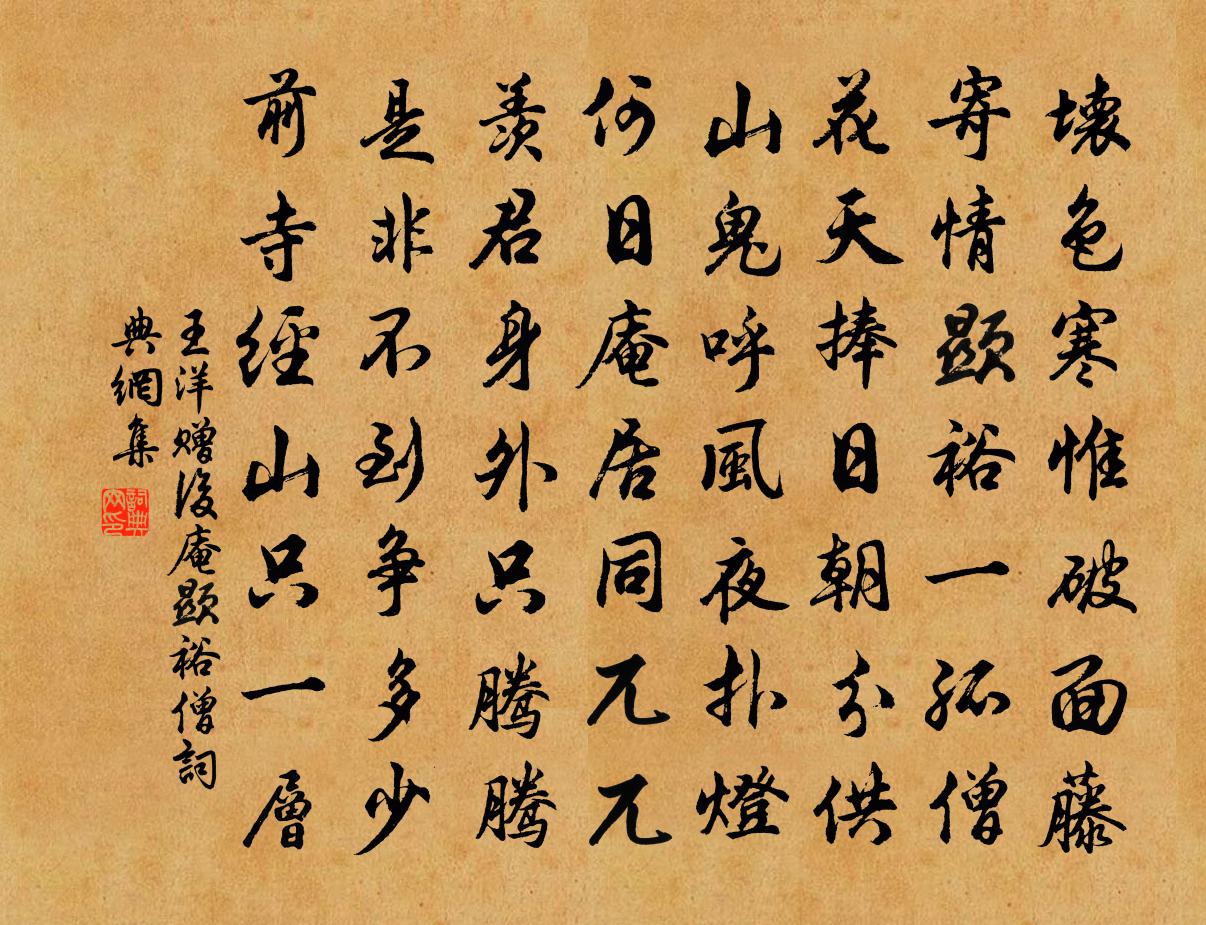 壞色寒惟破面藤
寄情顯裕一孤僧
花天捧日朝分供
山鬼呼風夜扑燈
何日庵居同兀兀
羨君身外只騰騰
是非不到爭多少
前寺經山只一層
王洋贈後庵顯裕僧詞
典網集
詞典网印